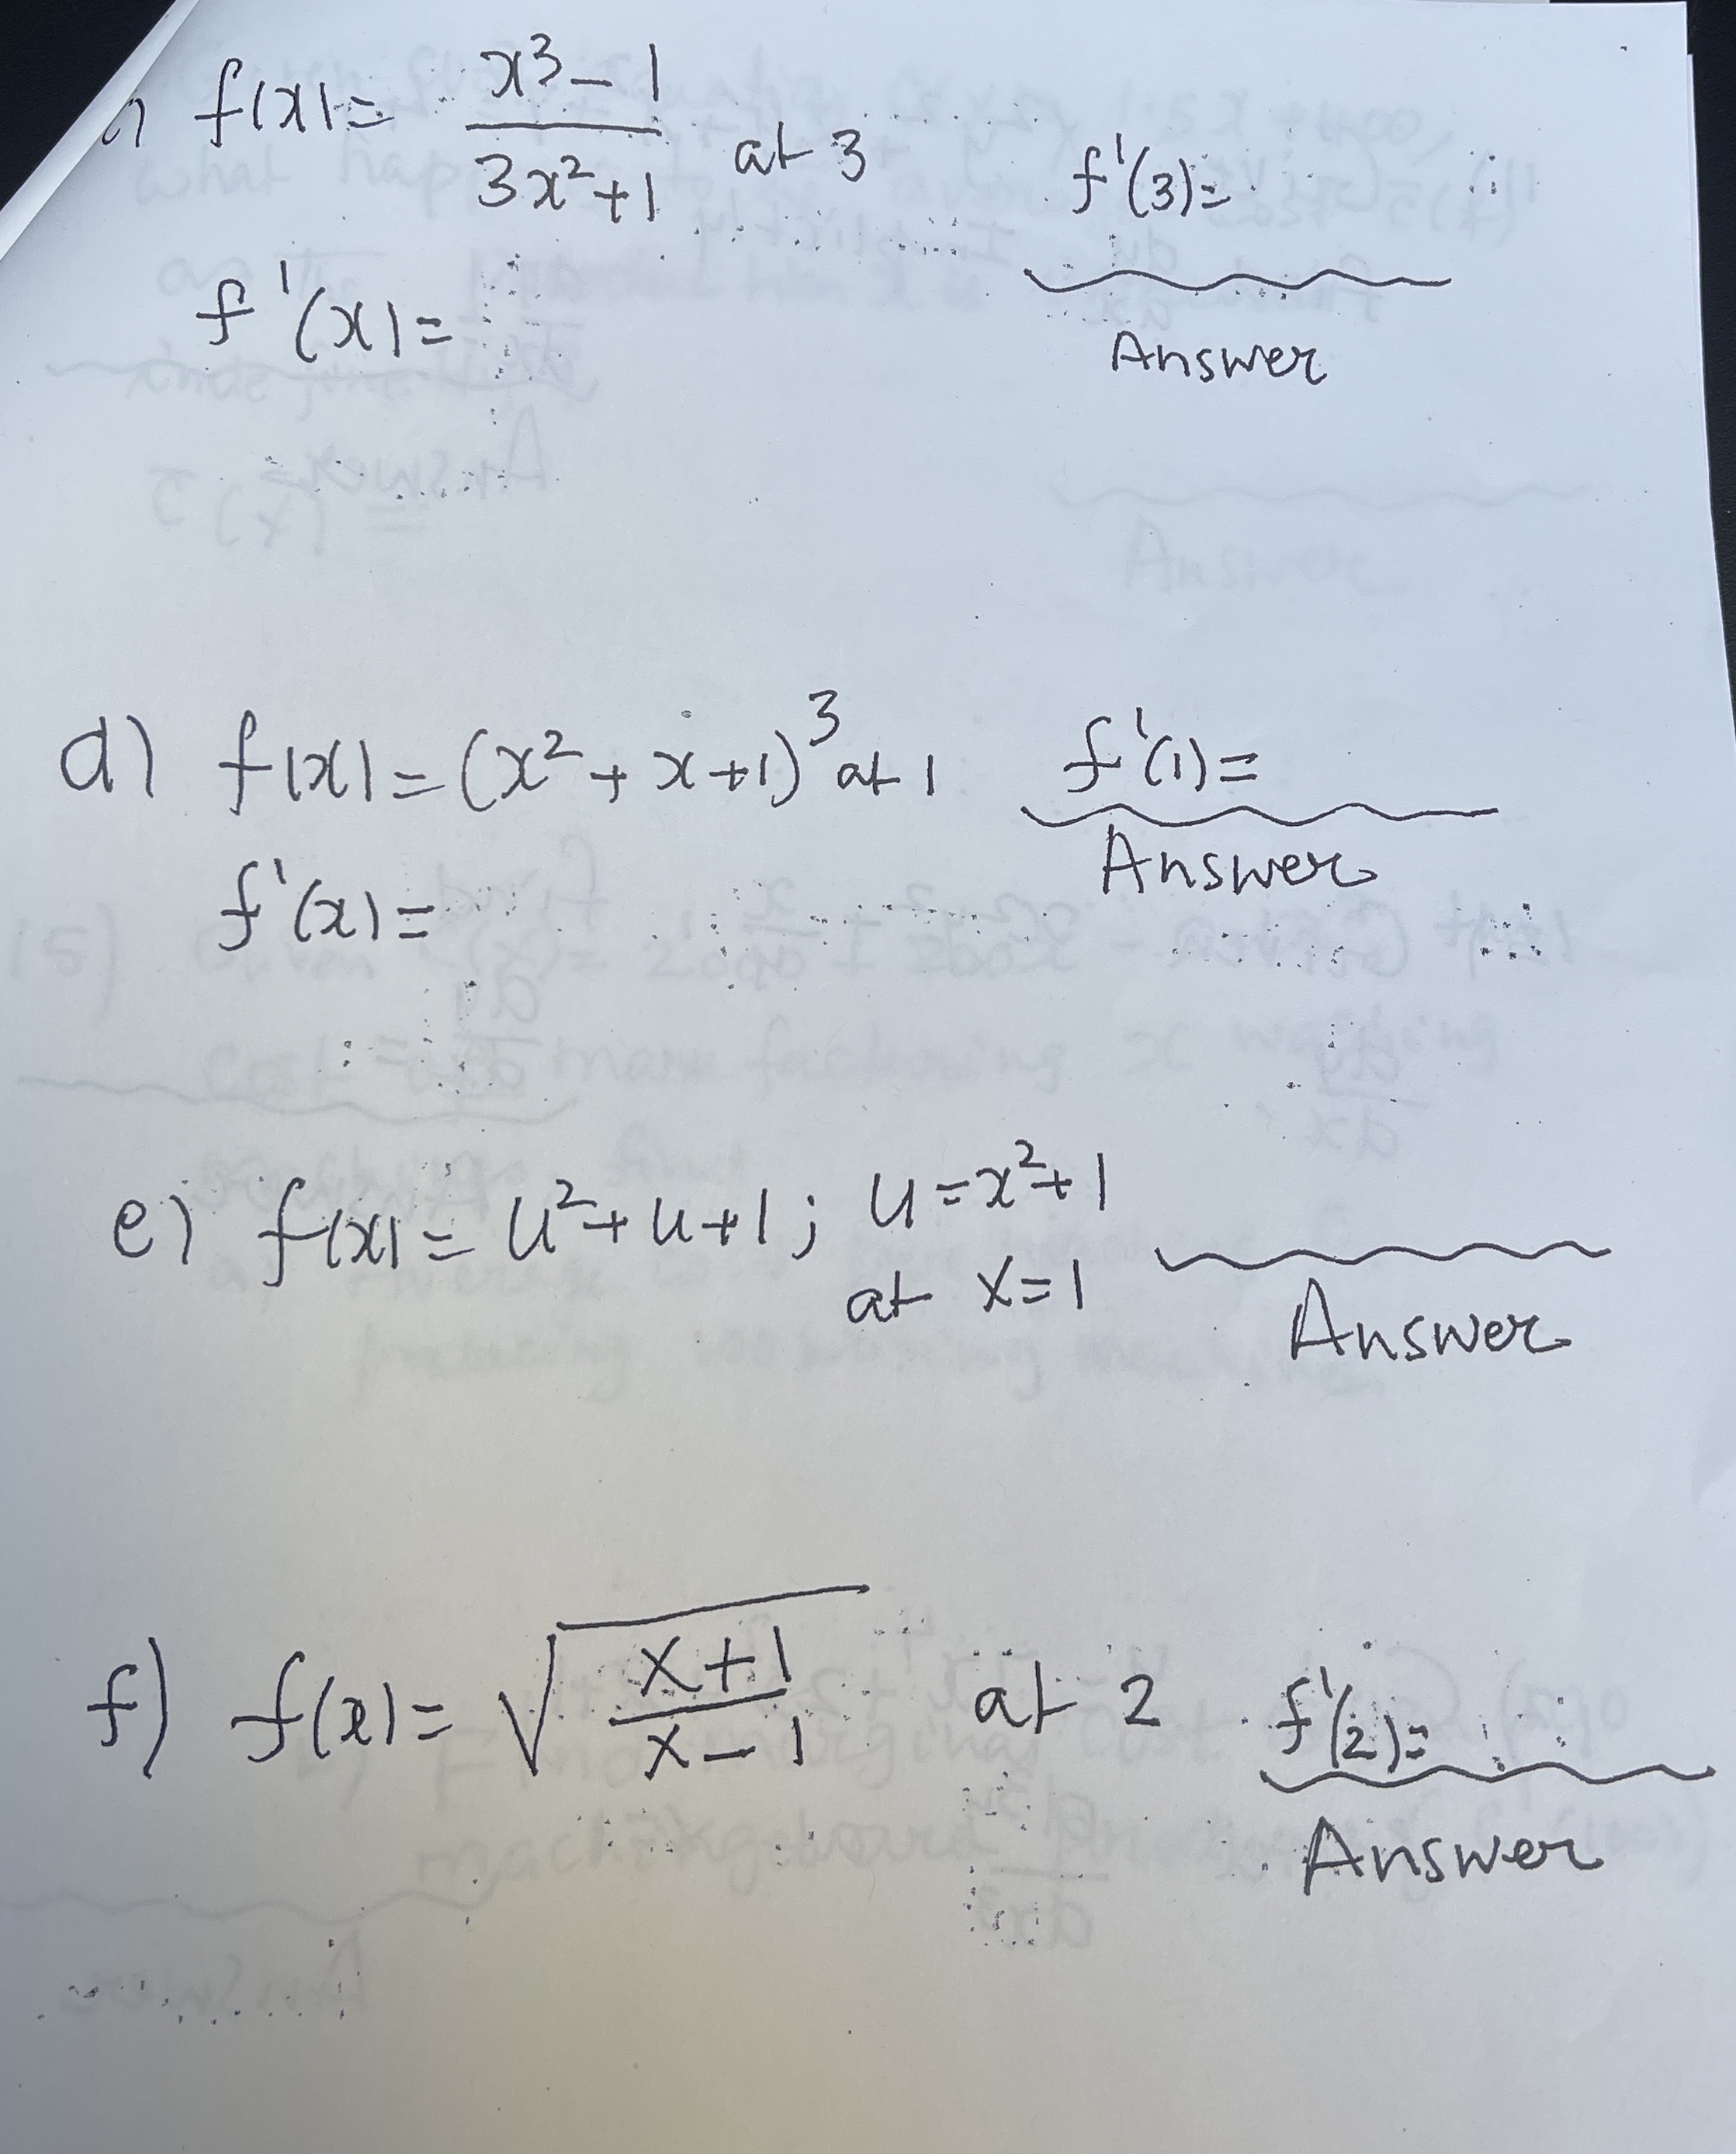 f(x) = x³ - 1 / 3x² + 1 at 3 f'(3) =
f'(x) =
Answer
d) f(x) = (x² + x + 1)³ at 1 f'(1) =
Answer
f'(x) =
e) f(x) = u² + u + 1 ; u = x² + 1
at x = 1
Answer
f) f(x) = √(x + 1 / x - 1) at 2 f'(2) =
Answer